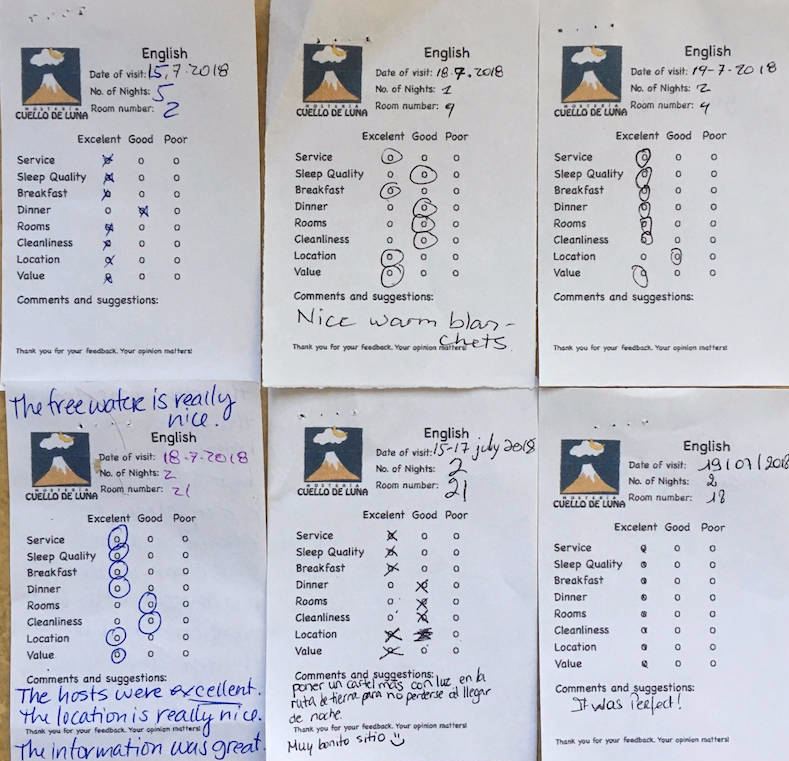 English
Date of visit: 15.7.2018
No. of Nights: 5
Room number: 2
HOSTERÍA
CUELLO DE LUNA
Excelent Good Poor
Service
Sleep Quality
Breakfast
Dinner
Rooms
Cleanliness
Location
Value
Comments and suggestions:
Thank you for your feedback. Your opinion matters!
English
Date of visit: 18.7.2018
No. of Nights: 1
Room number: 9
HOSTERÍA
CUELLO DE LUNA
Excelent Good Poor
Service
Sleep Quality
Breakfast
Dinner
Rooms
Cleanliness
Location
Value
Comments and suggestions:
Nice warm blan-
chets
Thank you for your feedback. Your opinion matters!
English
Date of visit: 19-7-2018
No. of Nights: 2
Room number: 4
HOSTERÍA
CUELLO DE LUNA
Excelent Good Poor
Service
Sleep Quality
Breakfast
Dinner
Rooms
Cleanliness
Location
Value
Comments and suggestions:
Thank you for your feedback. Your opinion matters!
The free water is really
nice.
English
Date of visit: 18-7-2018
No. of Nights: 2
Room number: 21
HOSTERÍA
CUELLO DE LUNA
Excelent Good Poor
Service
Sleep Quality
Breakfast
Dinner
Rooms
Cleanliness
Location
Value
Comments and suggestions:
The hosts were excellent.
The location is really nice.
Thank you for your feedback. Your opinion matters!
The information was great.
English
Date of visit: 15-17 july 2018
No. of Nights: 2
Room number: 21
HOSTERÍA
CUELLO DE LUNA
Excelent Good Poor
Service
Sleep Quality
Breakfast
Dinner
Rooms
Cleanliness
Location
Value
Comments and suggestions:
poner un cartel más con luz en la
ruta de tierra para no perderse al llegar
de noche.
Thank you for your feedback. Your opinion matters!
Muy bonito sitio
English
Date of visit: 19/07/2018
No. of Nights: 2
Room number: 18
HOSTERÍA
CUELLO DE LUNA
Excelent Good Poor
Service
Sleep Quality
Breakfast
Dinner
Rooms
Cleanliness
Location
Value
Comments and suggestions:
It was Perfect!
Thank you for your feedback. Your opinion matters!